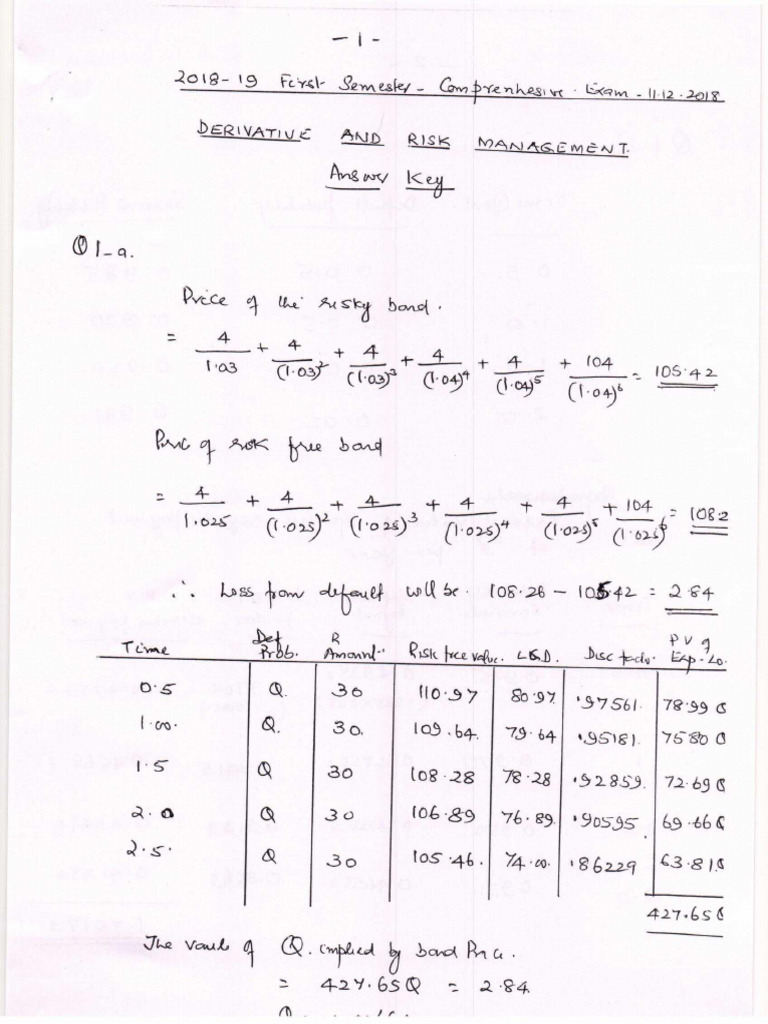 -1-
2018-19 First Semester - Comprenhesive. Exam - 11.12.2018
DERIVATIVE AND RISK MANAGEMENT.
Answer Key
Q 1-a.
Price of the risky bond.
= 4/1.03 + 4/(1.03)² + 4/(1.03)³ + 4/(1.04)⁴ + 4/(1.04)⁵ + 104/(1.04)⁶ = 105.42
Pric of risk free bond
= 4/1.025 + 4/(1.025)² + 4/(1.025)³ + 4/(1.025)⁴ + 4/(1.025)⁵ + 104/(1.025)⁶ = 108.2
∴ Loss from default will be. 108.26 – 105.42 = 2.84
Time Def Prob. R Amount.. Risk free value. L.G.D. Disc facto. PV of Exp. Lo.
0.5 Q. 30 110.97 80.97 .97561. 78.99 Q
1.00. Q. 30. 109.64. 79.64 .95181. 75.80 Q
1.5 Q 30 108.28 78.28 .92859. 72.69 Q
2.0 Q 30 106.89 76.89. .90595. 69.66 Q
2.5. Q 30 105.46. 74.00. .86229 63.81.Q
427.65 Q
The of Q. implied by bond Price.
= 427.65Q = 2.84.